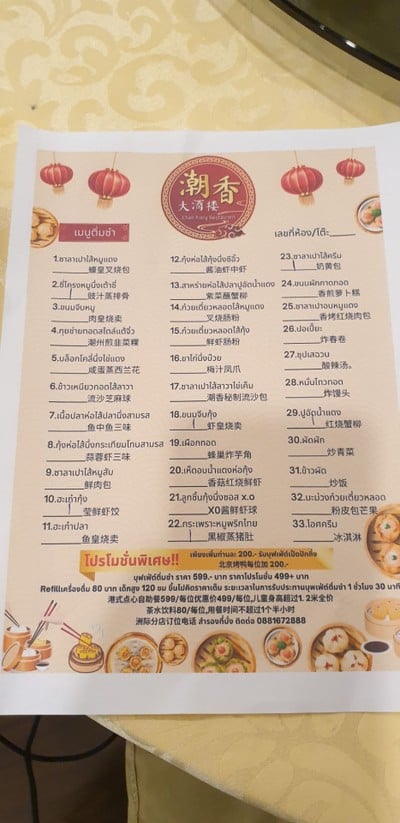 潮香
大酒楼
Chao Xiang Restaurant
เมนูติ่มซำ
เลขที่ห้อง/โต๊ะ:
1.ซาลาเปาไส้หมูแดง
蠔皇叉烧包
2.ซี่โครงหมูนึ่งเต้าซี่
豉汁蒸排骨
3.ขนมจีบหมู
肉皇烧卖
4.กุยช่ายทอดสไตล์แต้จิ๋ว
潮州煎韭菜粿
5.บล็อกโคลี่นึ่งไข่แดง
咸蛋蒸西兰花
6.ข้าวเหนียวทอดไส้ลาวา
流沙芝麻球
7.เนื้อปลาห่อไส้ปลานึ่งสามรส
鱼中鱼三味
8.กุ้งห่อไส้นึ่งกระเทียมโทนสามรส
蒜蓉虾三味
9.ซาลาเปาไส้หมูสับ
鲜肉包
10.ฮะเก๋ากุ้ง
莹鲜虾饺
11.ฮะเก๋าปลา
鱼皇烧卖
12.กุ้งห่อไส้กุ้งนึ่งซีอิ้ว
酱油虾中虾
13.สาหร่ายห่อไส้ปลาปูอัดน้ำแดง
紫菜蟹柳
14.ก๋วยเตี๋ยวหลอดไส้หมูแดง
叉烧肠粉
15.ก๋วยเตี๋ยวหลอดไส้กุ้ง
鲜虾肠粉
16.ขาไก่นึ่งบ๊วย
梅汁凤爪
17.ซาลาเปาไส้ลาวาไข่เค็ม
潮香秘制流沙包
18.ขนมจีบกุ้ง
虾皇烧卖
19.เผือกทอด
蜂巢炸芋角
20.เห็ดอบน้ำแดงห่อกุ้ง
香菇红烧鲜虾
21.ลูกชิ้นกุ้งนึ่งซอส x.o
XO酱鲜虾球
22.กระเพราะหมูพริกไทย
黑椒蒸猪肚
23.ซาลาเปาไส้ครีม
奶黄包
24.ขนมผักกาดทอด
香煎萝卜糕
25.ซาลาเปาอบหมูแดง
香烤红烧肉包
26.ปอเปี๊ยะ
炸春卷
27.ซุปเสฉวน
酸辣汤。
28.หมั่นโถวทอด
炸馒头
29.ปูอัดน้ำแดง
红烧蟹柳
30.ผัดผัก
炒青菜
31.ข้าวผัด
炒饭
32.มะม่วงก๋วยเตี๋ยวหลอด
粉皮包芒果
33.ไอศครีม
冰淇淋
โปรโมชั่นพิเศษ!!
เพียงเพิ่มท่านละ 200.- รับบุฟเฟ่ต์เป็ดปักกิ่ง
北京烤鸭每位加 200.-
บุฟเฟ่ต์ติ่มซำ ราคา 599.- บาท ราคาโปรโมชั่น 499+ บาท
Refillเครื่องดื่ม 80 บาท เด็กสูง 120 ซม ขึ้นไปคิดราคาเต็ม ระยะเวลาในการรับประทานบุฟเฟ่ต์ติ่มซำ 1 ชั่วโมง 30 นาที
港式点心自助餐599/每位优惠价499/每位,儿童身高超过1. 2米全价
茶水饮料80/每位,用餐时间不超过1个半小时
洲际分店订位电话 สำรองที่นั่ง ติดต่อ 0881672888